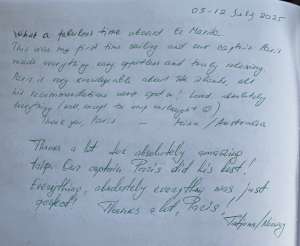 05-12 July 2025
What a fabulous time aboard El Mundo.
This was my first time sailing and our captain Paris
made everything easy, effortless and truly relaxing
Paris is very knowledgeable about the islands, all
his recommendations were spot on! Loved absolutely
everything (
Thank you, Paris — / Australia
Thanks a lot for absolutely amazing
trip. Our captain Paris did his best!
Everything, absolutely everything was just
perfect! Thanks a lot, Paris!
Tatyana/